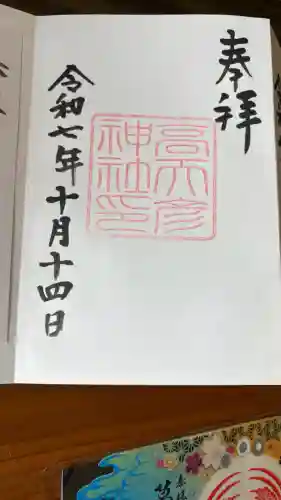 奉拝
高天彦
神社印
令和七年十月十四日